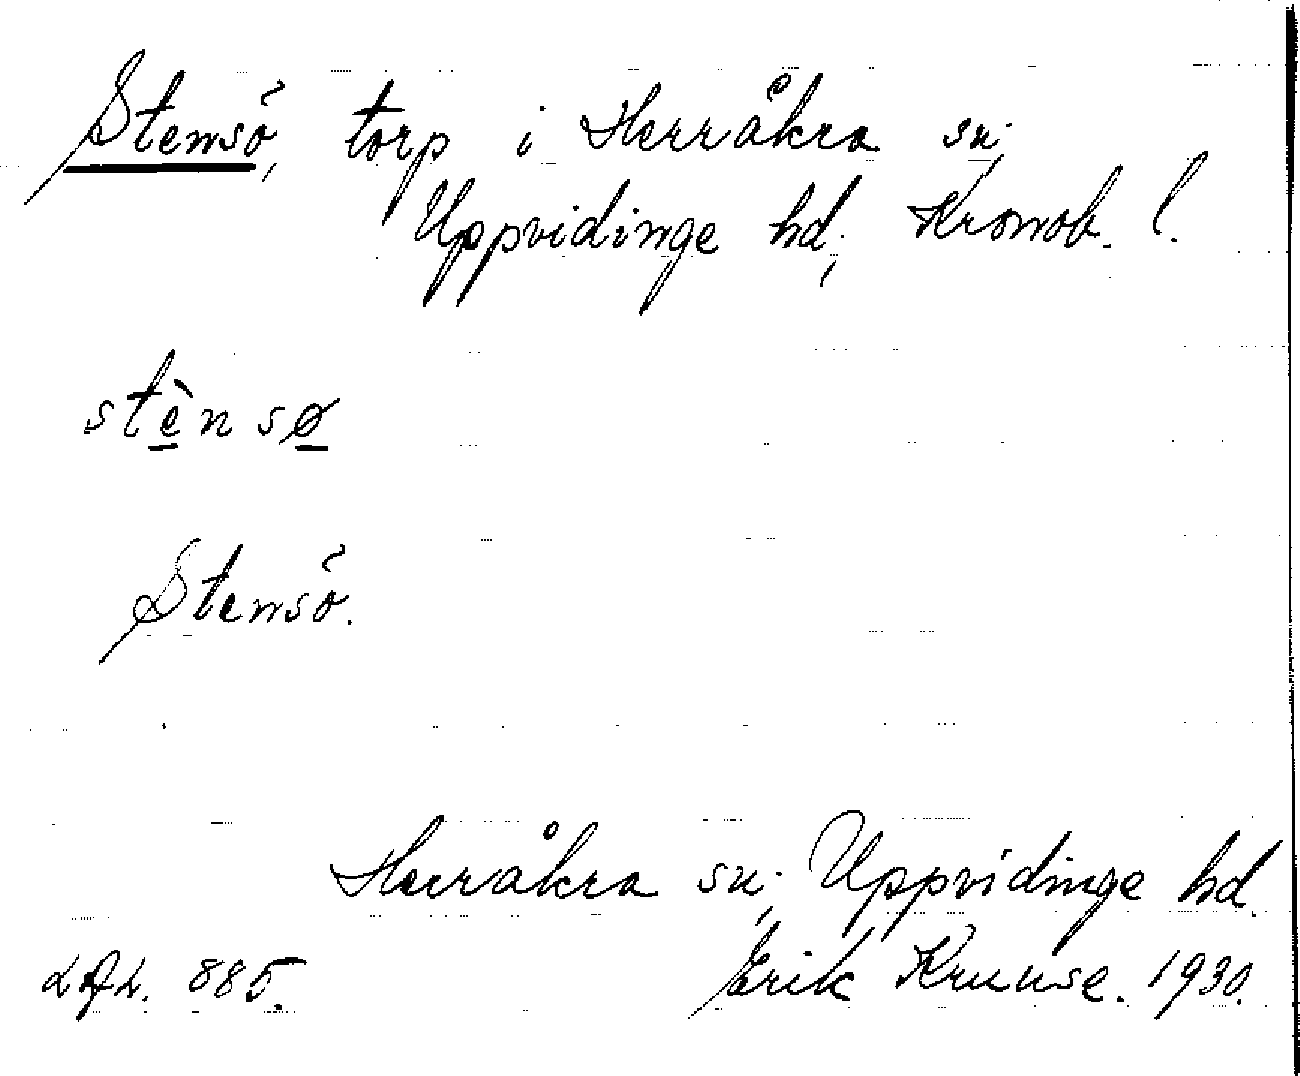 Stensö, torp i Herråkra sn.,
Uppvidinge hd., Kronob. l.
stènsø
Stensö.
Herråkra sn., Uppvidinge hd.
885. Erik Kruuse. 1930.